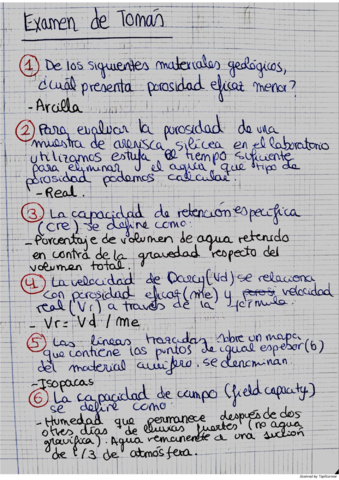 Examen de Tomás
1 De los siguientes materiales geológicos,
¿cuál presenta porosidad eficaz menor?
- Arcilla
2 Para evaluar la porosidad de una
muestra de arenisca silícea en el laboratorio
utilizamos estufa el tiempo suficiente
para eliminar el agua, que tipo de
porosidad podemos calcular.
- Real.
3 La capacidad de retención específica
(cre) se define como:
- Porcentaje de volumen de agua retenido
en contra de la gravedad respecto del
volumen total.
4 La velocidad de Darcy (Vd) se relaciona
con porosidad eficaz (me) y velocidad
real (Vr) a través de la fórmula:
- Vr = Vd / me
5 Las líneas trazadas sobre un mapa
que contiene los puntos de igual espesor (b)
del material acuífero se denominan.
- Isopacas
6 La capacidad de campo (field capacity)
se define como:
- Humedad que permanece después de dos
o tres días de lluvias fuertes (no agua
gravífica). Agua remanente a una succión
de 1/3 de atmósfera.